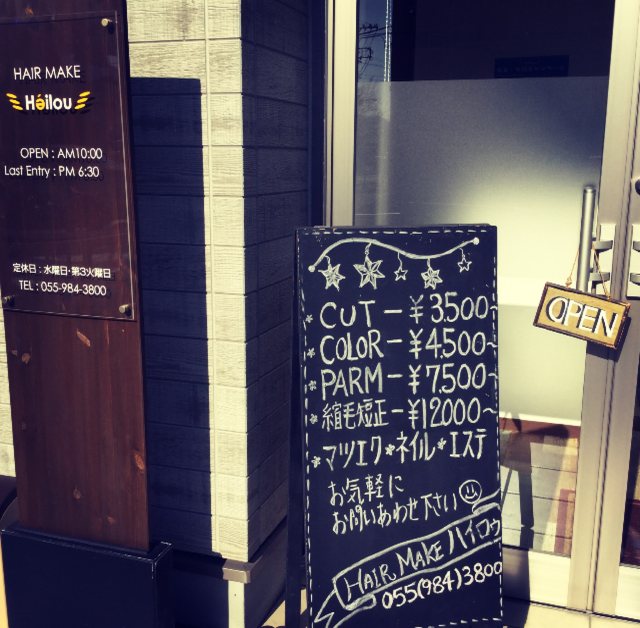 HAIR MAKE
Héilou
OPEN : AM10:00
Last Entry : PM 6:30
定休日 : 水曜日・第3火曜日
TEL : 055-984-3800
CUT - ¥3.500~
COLOR - ¥4.500~
PARM - ¥7.500~
縮毛短正 - ¥12000~
マツエク*ネイル*エステ
お気軽に
お問いあわせ下さい
HAIR MAKE ハイロゥ
055(984)3800
OPEN